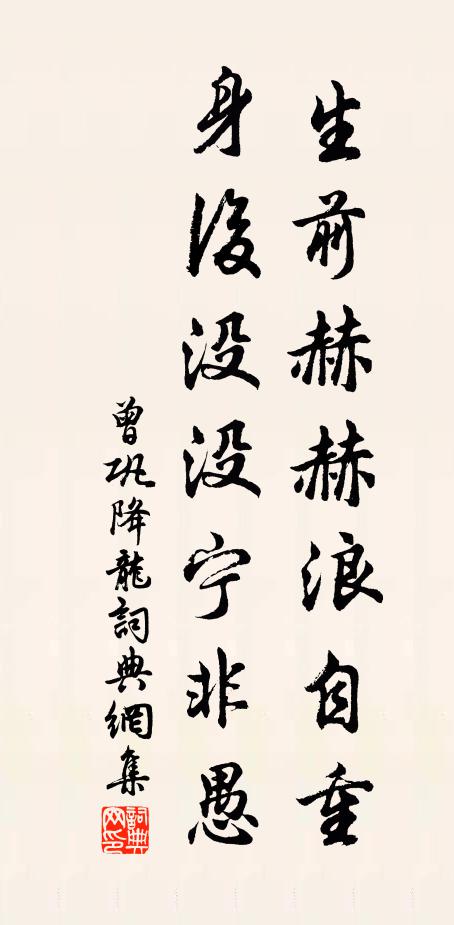 生前赫赫浪自重
身後没没宁非愚
曾巩降龍詞典網集
詞典网印